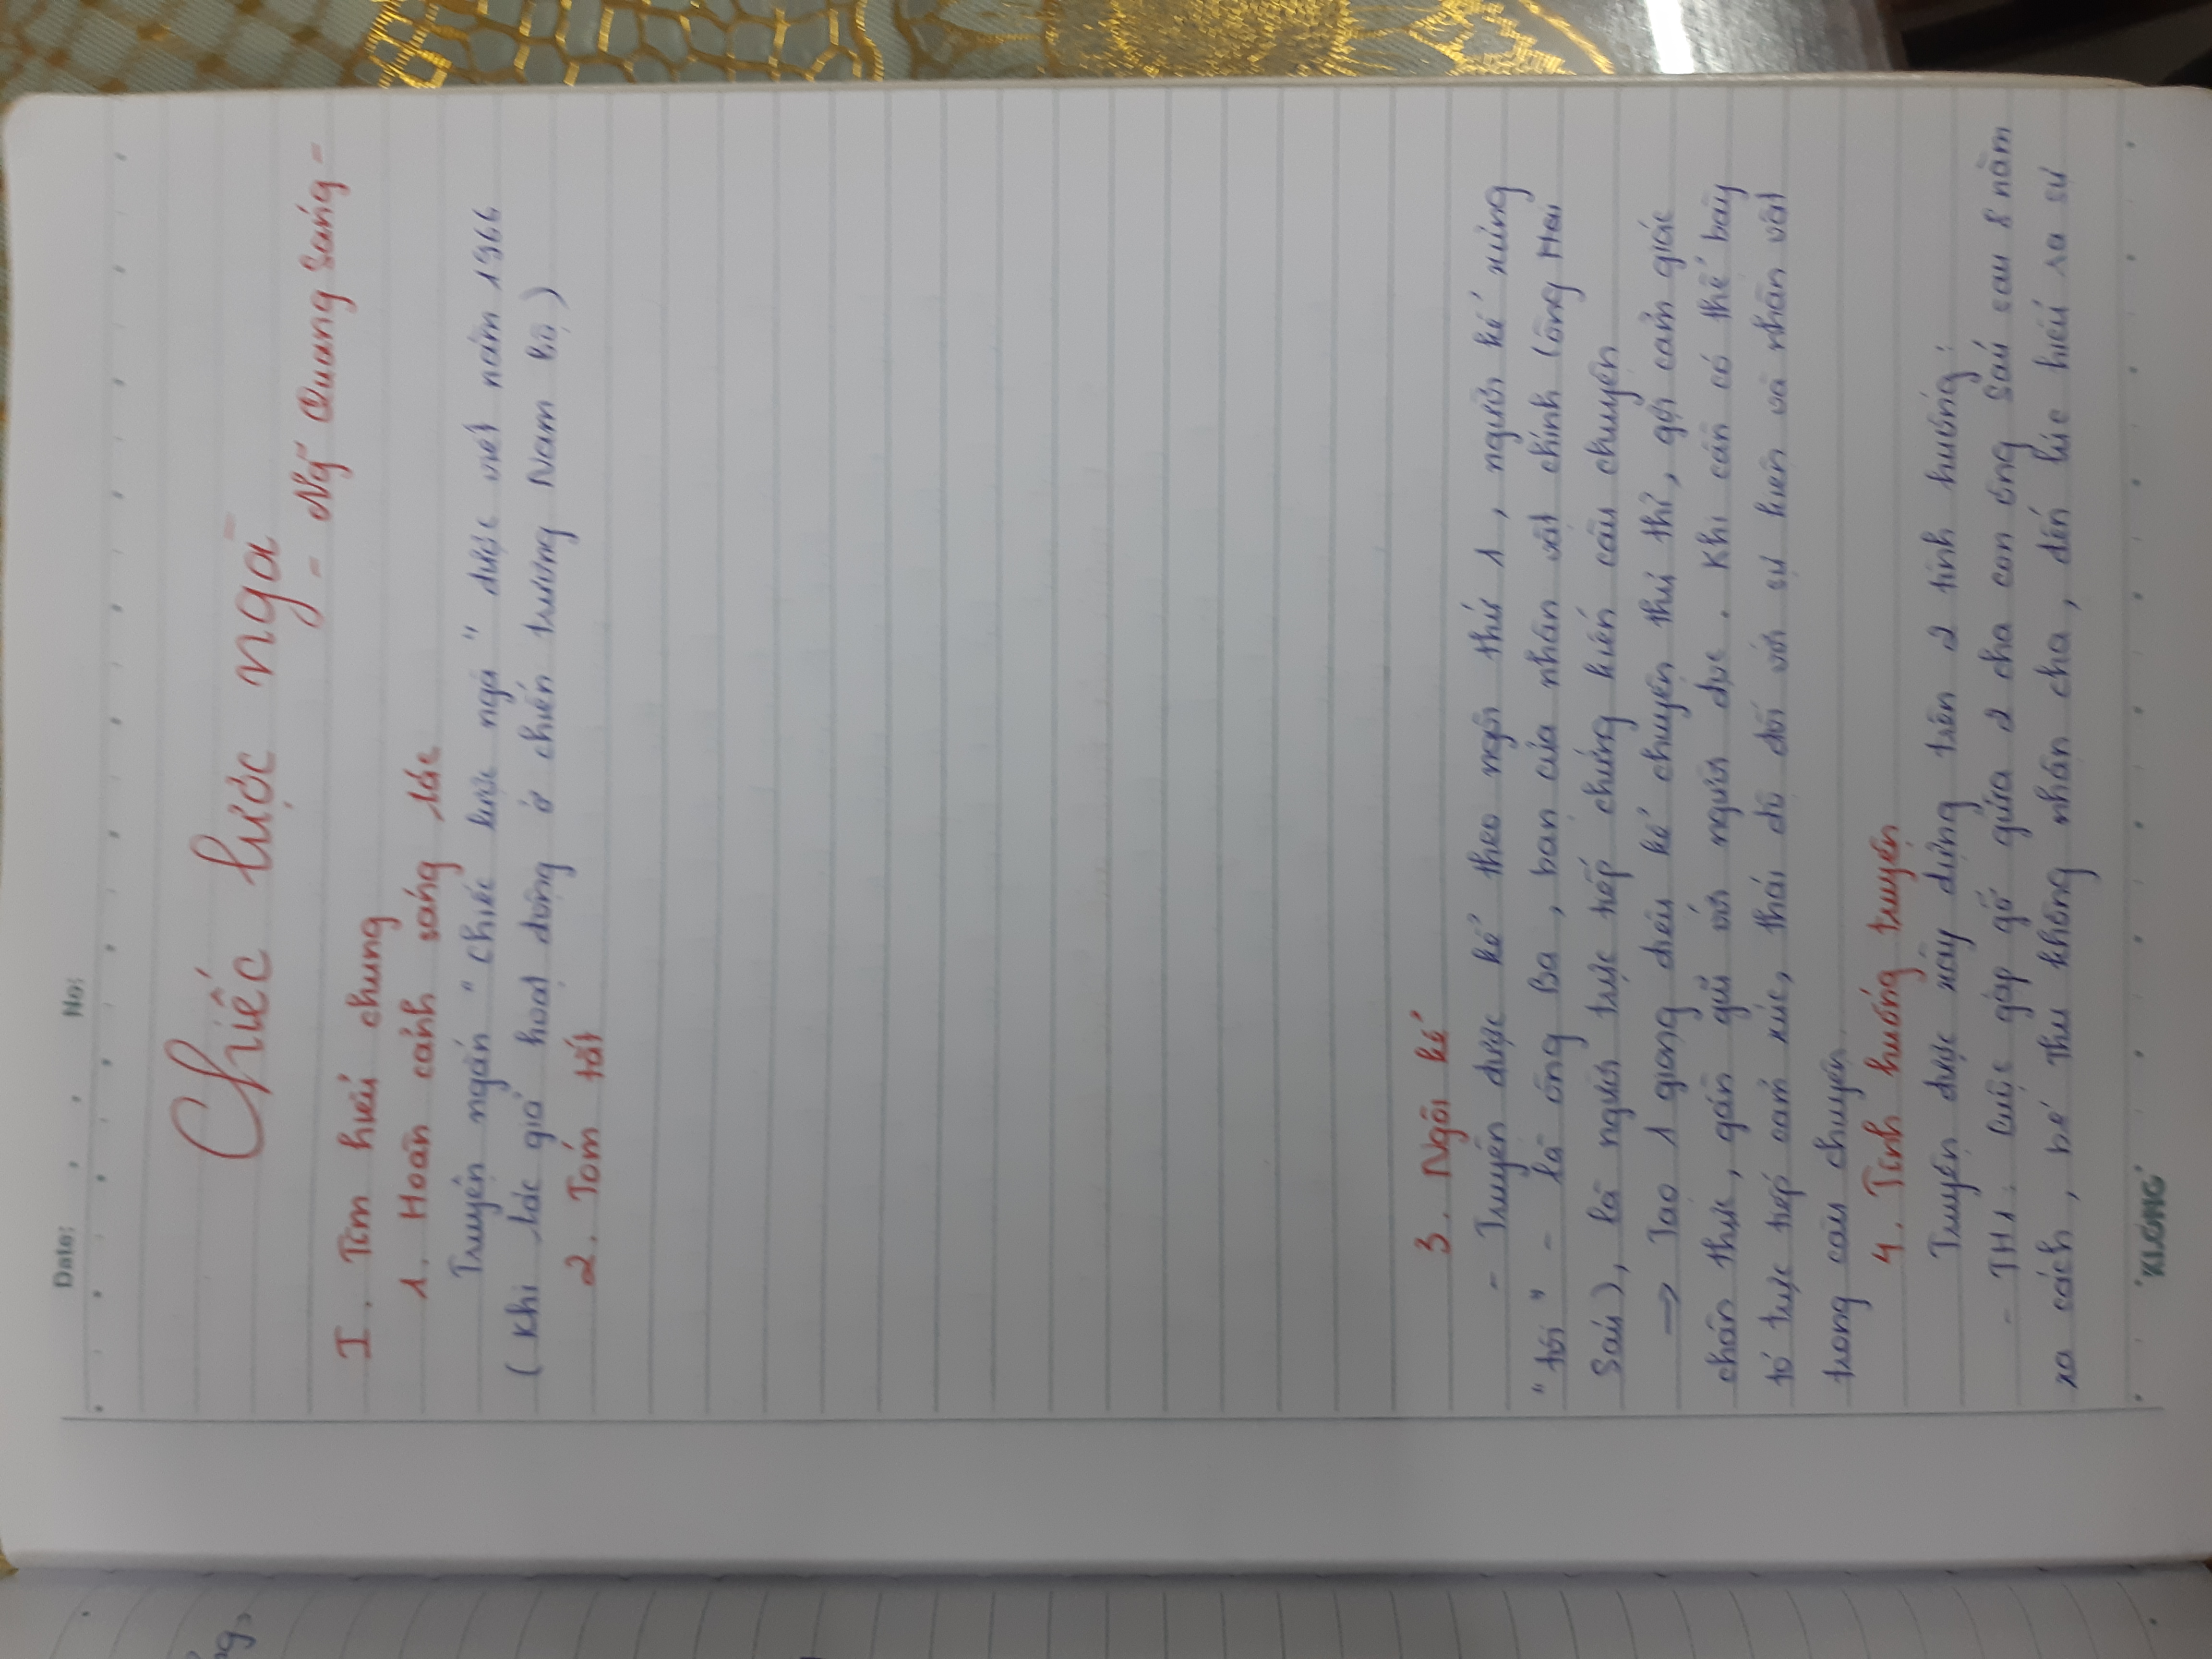 Date: No:
Chiếc lược ngà
- Ng~ Quang Sáng -
I. Tìm hiểu chung
1. Hoàn cảnh sáng tác
Truyện ngắn "Chiếc lược ngà" được viết năm 1966
(Khi tác giả hoạt động ở chiến trường Nam Bộ)
2. Tóm tắt
3. Ngôi kể
- Truyện được kể theo ngôi thứ 1, người kể xưng
"tôi" - là ông Ba, bạn của nhân vật chính (ông Hai
Sáu), là người trực tiếp chứng kiến câu chuyện
→ Tạo 1 giọng điệu kể chuyện thủ thỉ, gợi cảm giác
chân thực, gần gũi với người đọc. Khi cần có thể bày
tỏ trực tiếp cảm xúc, thái độ đối với sự kiện và nhân vật
trong câu chuyện.
4. Tình huống truyện
Truyện được xây dựng trên 2 tình huống:
- TH1: Cuộc gặp gỡ giữa 2 cha con ông Sáu sau 8 năm
xa cách, bé Thu không nhận cha, đến lúc hiểu ra sự
KLONG